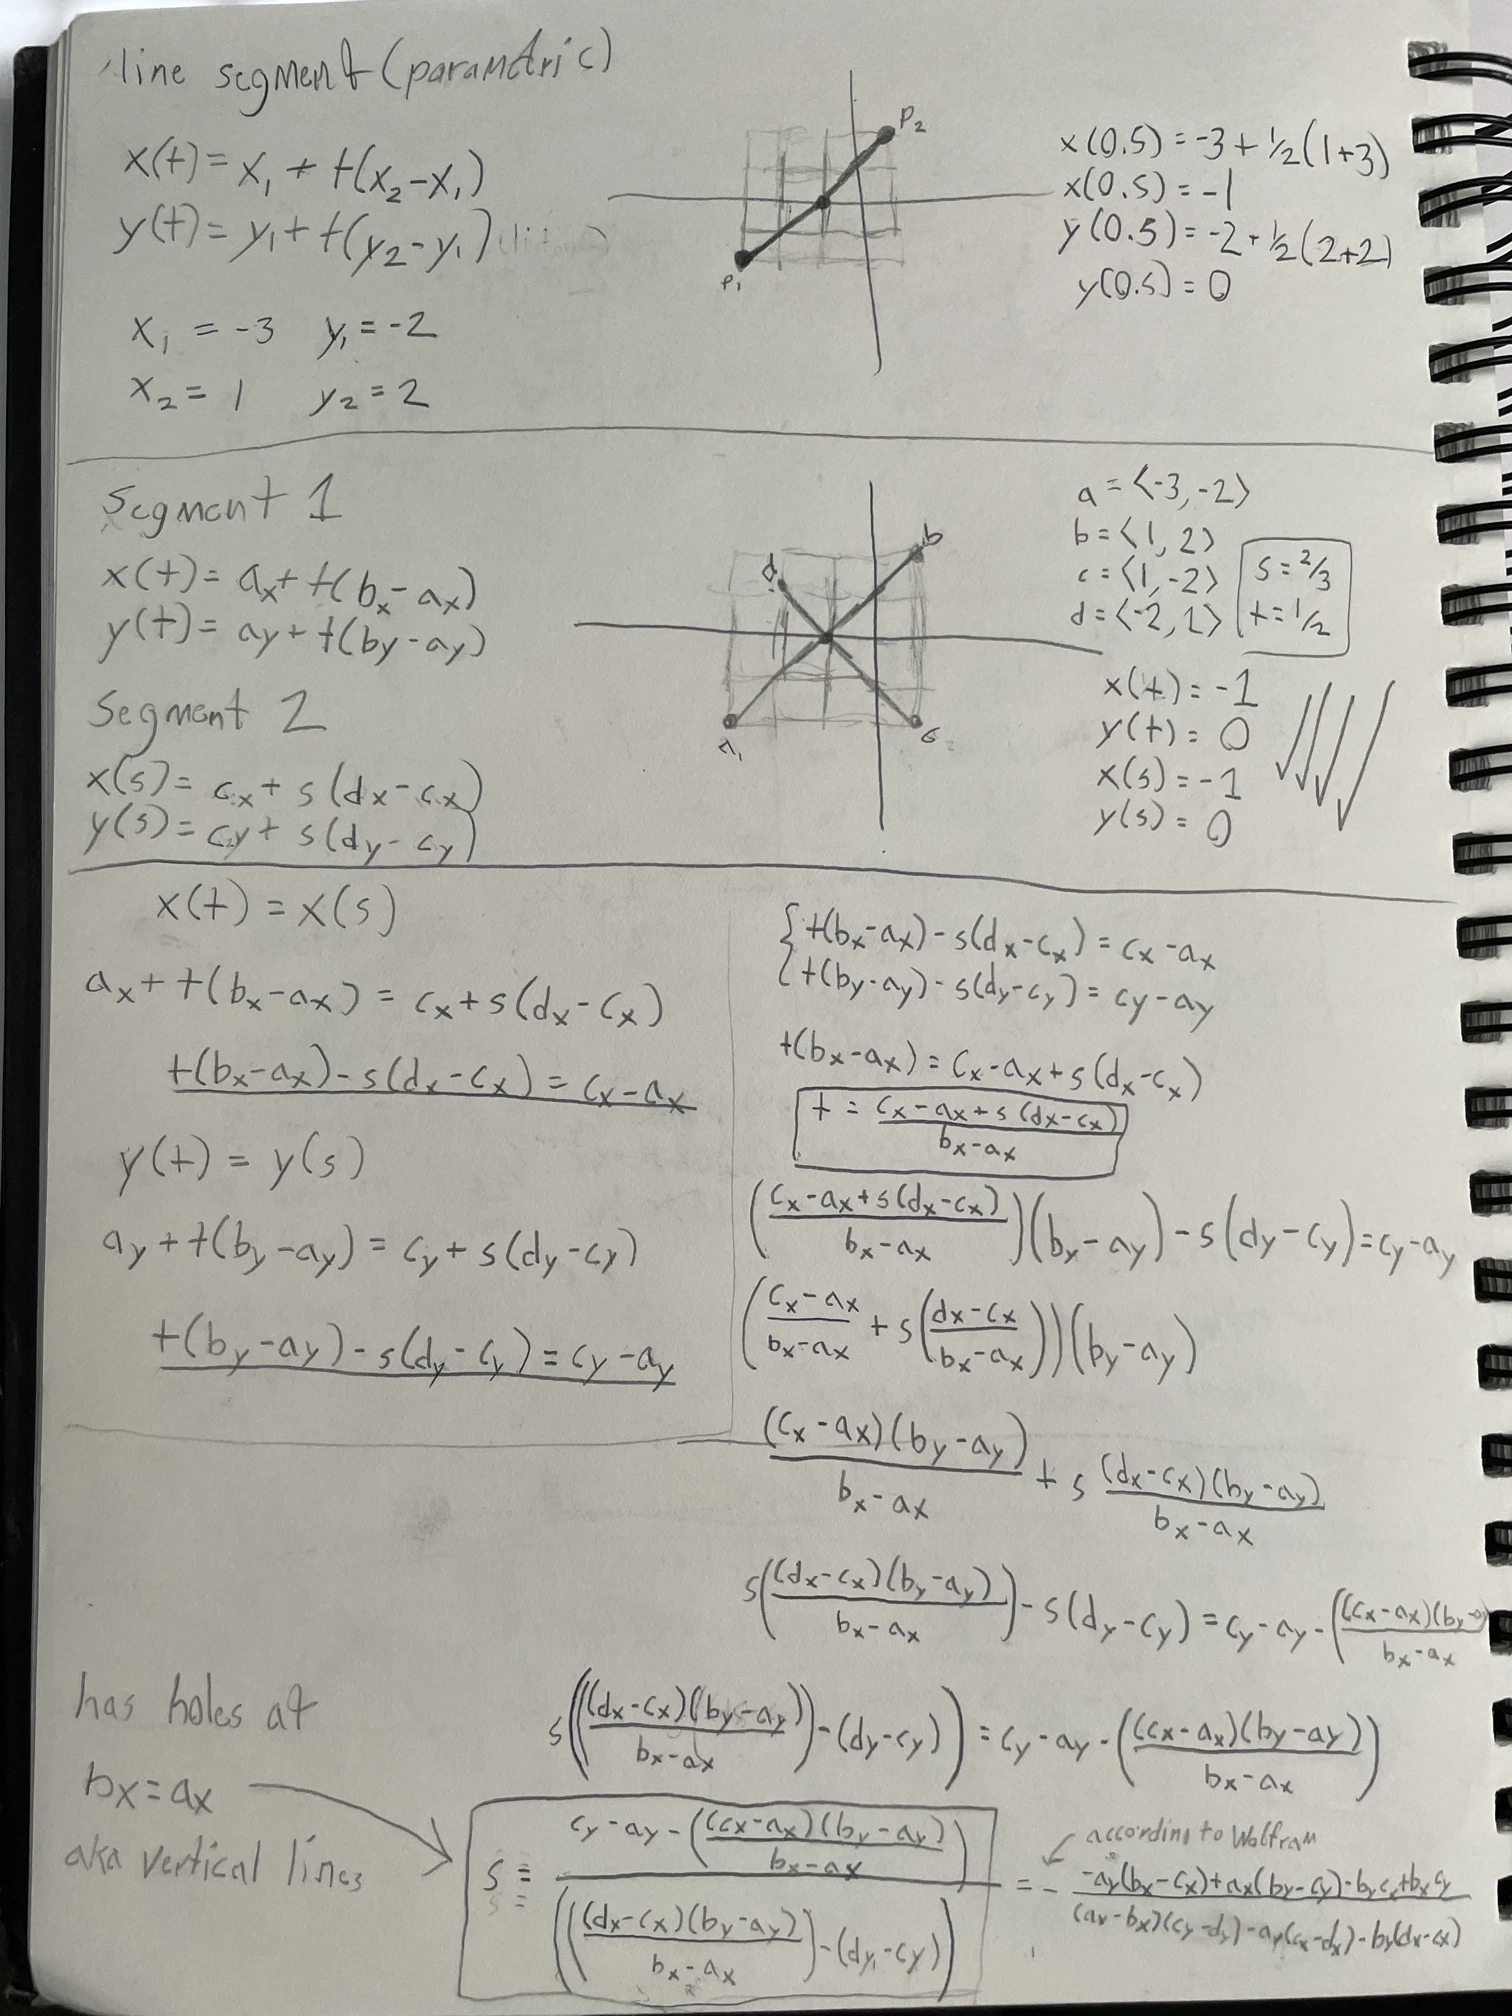 line segment (parametric)
x(t) = x₁ + t(x₂-x₁)
y(t) = y₁ + t(y₂-y₁)
x₁ = -3 y₁ = -2
x₂ = 1 y₂ = 2
P₂
P₁
x(0.5) = -3 + ½(1+3)
x(0.5) = -1
y(0.5) = -2 + ½(2+2)
y(0.5) = 0
Segment 1
x(t) = aₓ + t(bₓ - aₓ)
y(t) = ay + t(by - ay)
Segment 2
x(s) = cx + s(dx - cx)
y(s) = cy + s(dy - cy)
d
b
a
c
a = ⟨-3, -2⟩
b = ⟨1, 2⟩
c = ⟨1, -2⟩
d = ⟨-2, 1⟩
s = 2/3
t = 1/2
x(t) = -1
y(t) = 0
x(s) = -1
y(s) = 0
x(t) = x(s)
ax + t(bx - ax) = cx + s(dx - cx)
t(bx - ax) - s(dx - cx) = cx - ax
y(t) = y(s)
ay + t(by - ay) = cy + s(dy - cy)
t(by - ay) - s(dy - cy) = cy - ay
{ t(bx - ax) - s(dx - cx) = cx - ax
{ t(by - ay) - s(dy - cy) = cy - ay
t(bx - ax) = cx - ax + s(dx - cx)
t = (cx - ax + s(dx - cx)) / (bx - ax)
((cx - ax + s(dx - cx)) / (bx - ax))(bx - ay) - s(dy - cy) = cy - ay
((cx - ax)/(bx - ax) + s((dx - cx)/(bx - ax)))(by - ay)
(cx - ax)(by - ay)/(bx - ax) + s (dx - cx)(by - ay)/(bx - ax)
s((dx - cx)(by - ay)/(bx - ax)) - s(dy - cy) = cy - ay - ((cx - ax)(by - ay)/(bx - ax)
s(((dx - cx)(by - ay)/(bx - ax)) - (dy - cy)) = cy - ay - ((cx - ax)(by - ay)/(bx - ax))
has holes at
bx = ax
aka vertical lines
s = (cy - ay - ((cx - ax)(by - ay)/(bx - ax))) / (((dx - cx)(by - ay)/(bx - ax)) - (dy - cy))
according to Wolfram
= - (-ay(bx - cx) + ax(by - cy) - by cx + bx cy) / ((ax - bx)(cy - dy) - ay(cx - dx) - by(dx - cx))